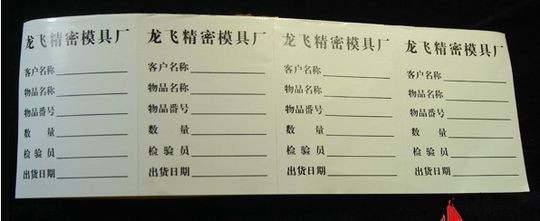 龙飞精密模具厂
客户名称
物品名称
物品番号
数 量
检 验 员
出货日期
龙飞精密模具厂
客户名称
物品名称
物品番号
数 量
检 验 员
出货日期
龙飞精密模具厂
客户名称
物品名称
物品番号
数 量
检 验 员
出货日期
龙飞精密模具厂
客户名称
物品名称
物品番号
数 量
检 验 员
出货日期